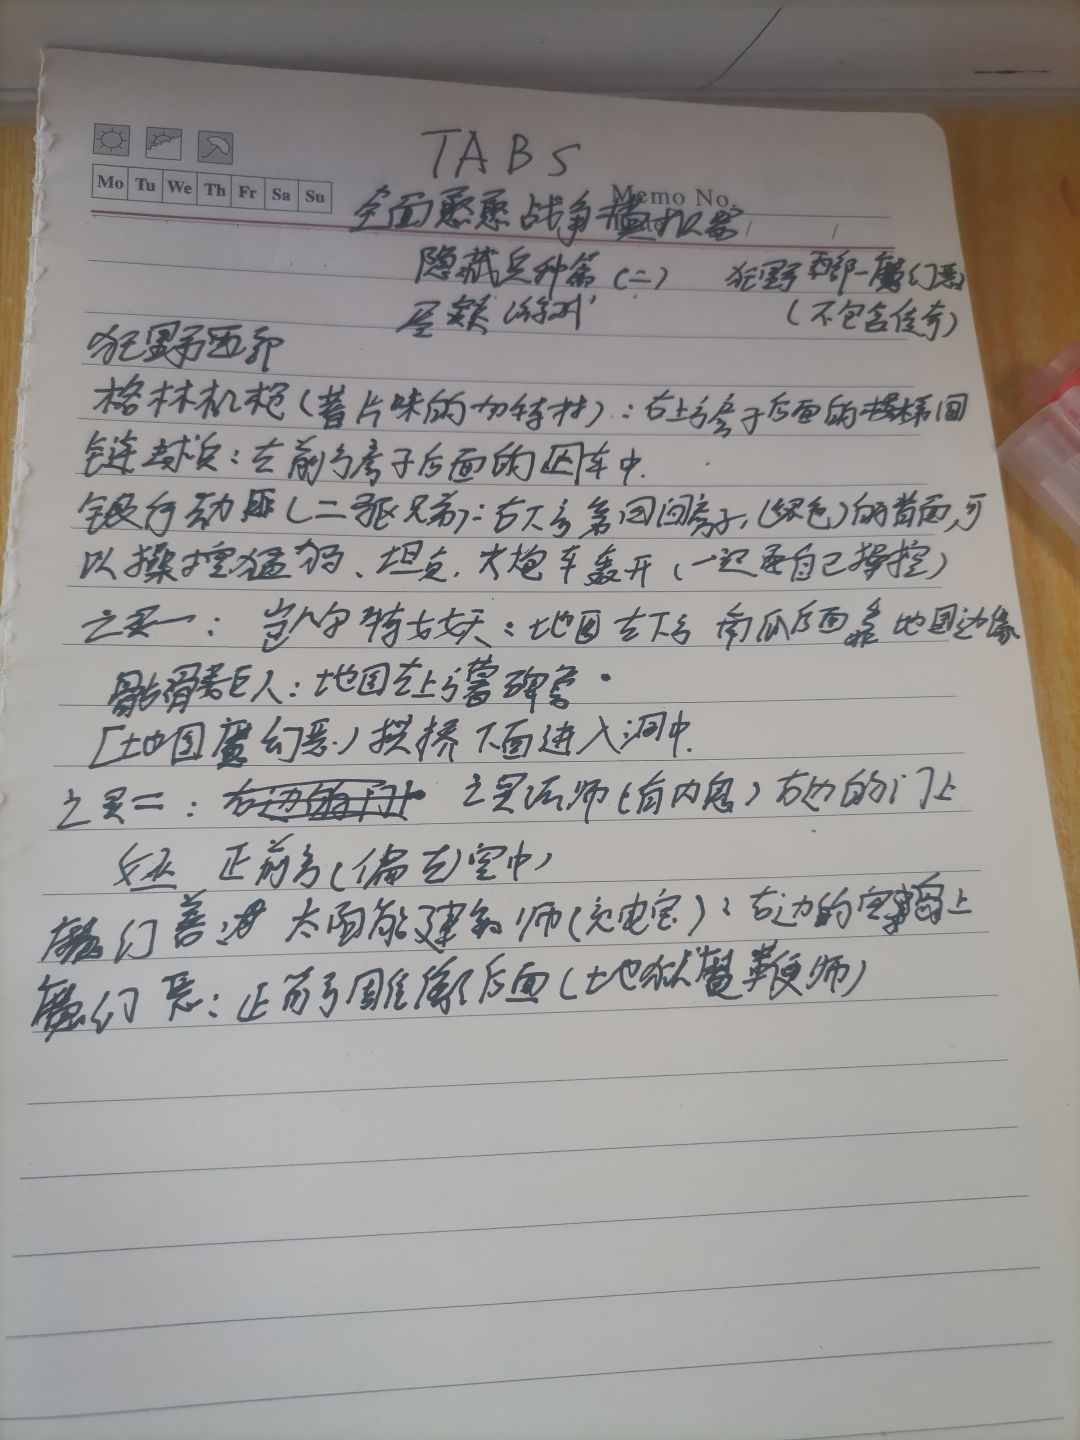 Mo Tu We Th Fr Sa Su
TABS
Memo No.
全面憨憨战争模拟器
隐藏兵种篇(二) 狂野西部-魔幻恶
(不包含传奇)
狂野西部
格林机枪(薯片味的加特林):右上方房子后面的楼梯间
链球兵:左前方房子后面的囚车中.
银行劫匪(二驱兄弟):右下方第四间房子,(绿色)的背面,可
以操控猛犸、坦克.大炮车轰开(一起要自己操控)
之灵一: 岂尔特女妖:地图左下方 南瓜后面靠地图边缘
骷髅巨人:地图左上方墓碑旁.
[地图魔幻恶)拱桥下面进入洞中.
之灵二: 右边的门上 之灵法师(有内息)右边的门上
女巫 正前方(偏左)空中)
魔幻善 太阳能建筑师(充电宝):右边的宝箱上
魔幻 恶:正前方雕像后面(地狱魔鞭师)